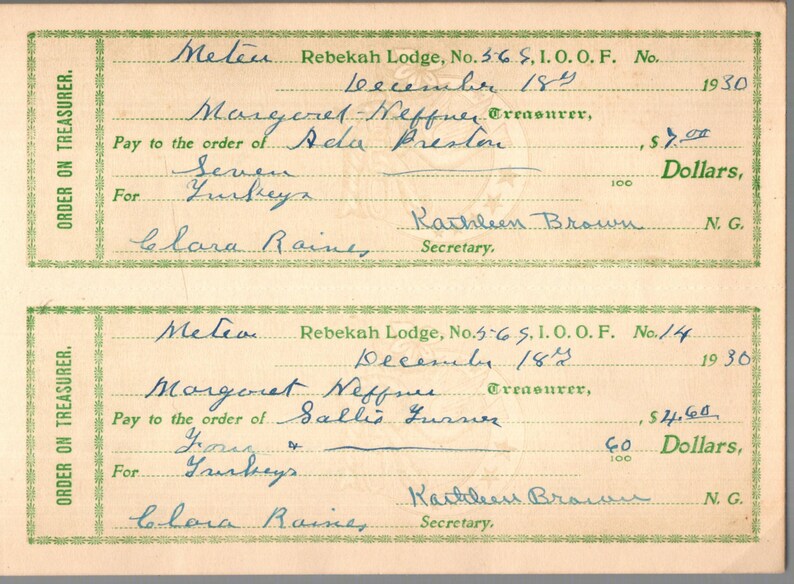 ORDER ON TREASURER.
Meteor Rebekah Lodge, No. 569, I. O. O. F. No.
December 18th 1930
Margaret Neffner Treasurer,
Pay to the order of Ada Preston , $ 7.00
Seven 100 Dollars,
For Turkeys
Kathleen Brown N. G.
Clara Raines Secretary.
ORDER ON TREASURER.
Meteor Rebekah Lodge, No. 569, I. O. O. F. No. 14
December 18th 1930
Margaret Neffner Treasurer,
Pay to the order of Sallie Turner , $ 4.60
Four & 60 100 Dollars,
For Turkeys
Kathleen Brown N. G.
Clara Raines Secretary.